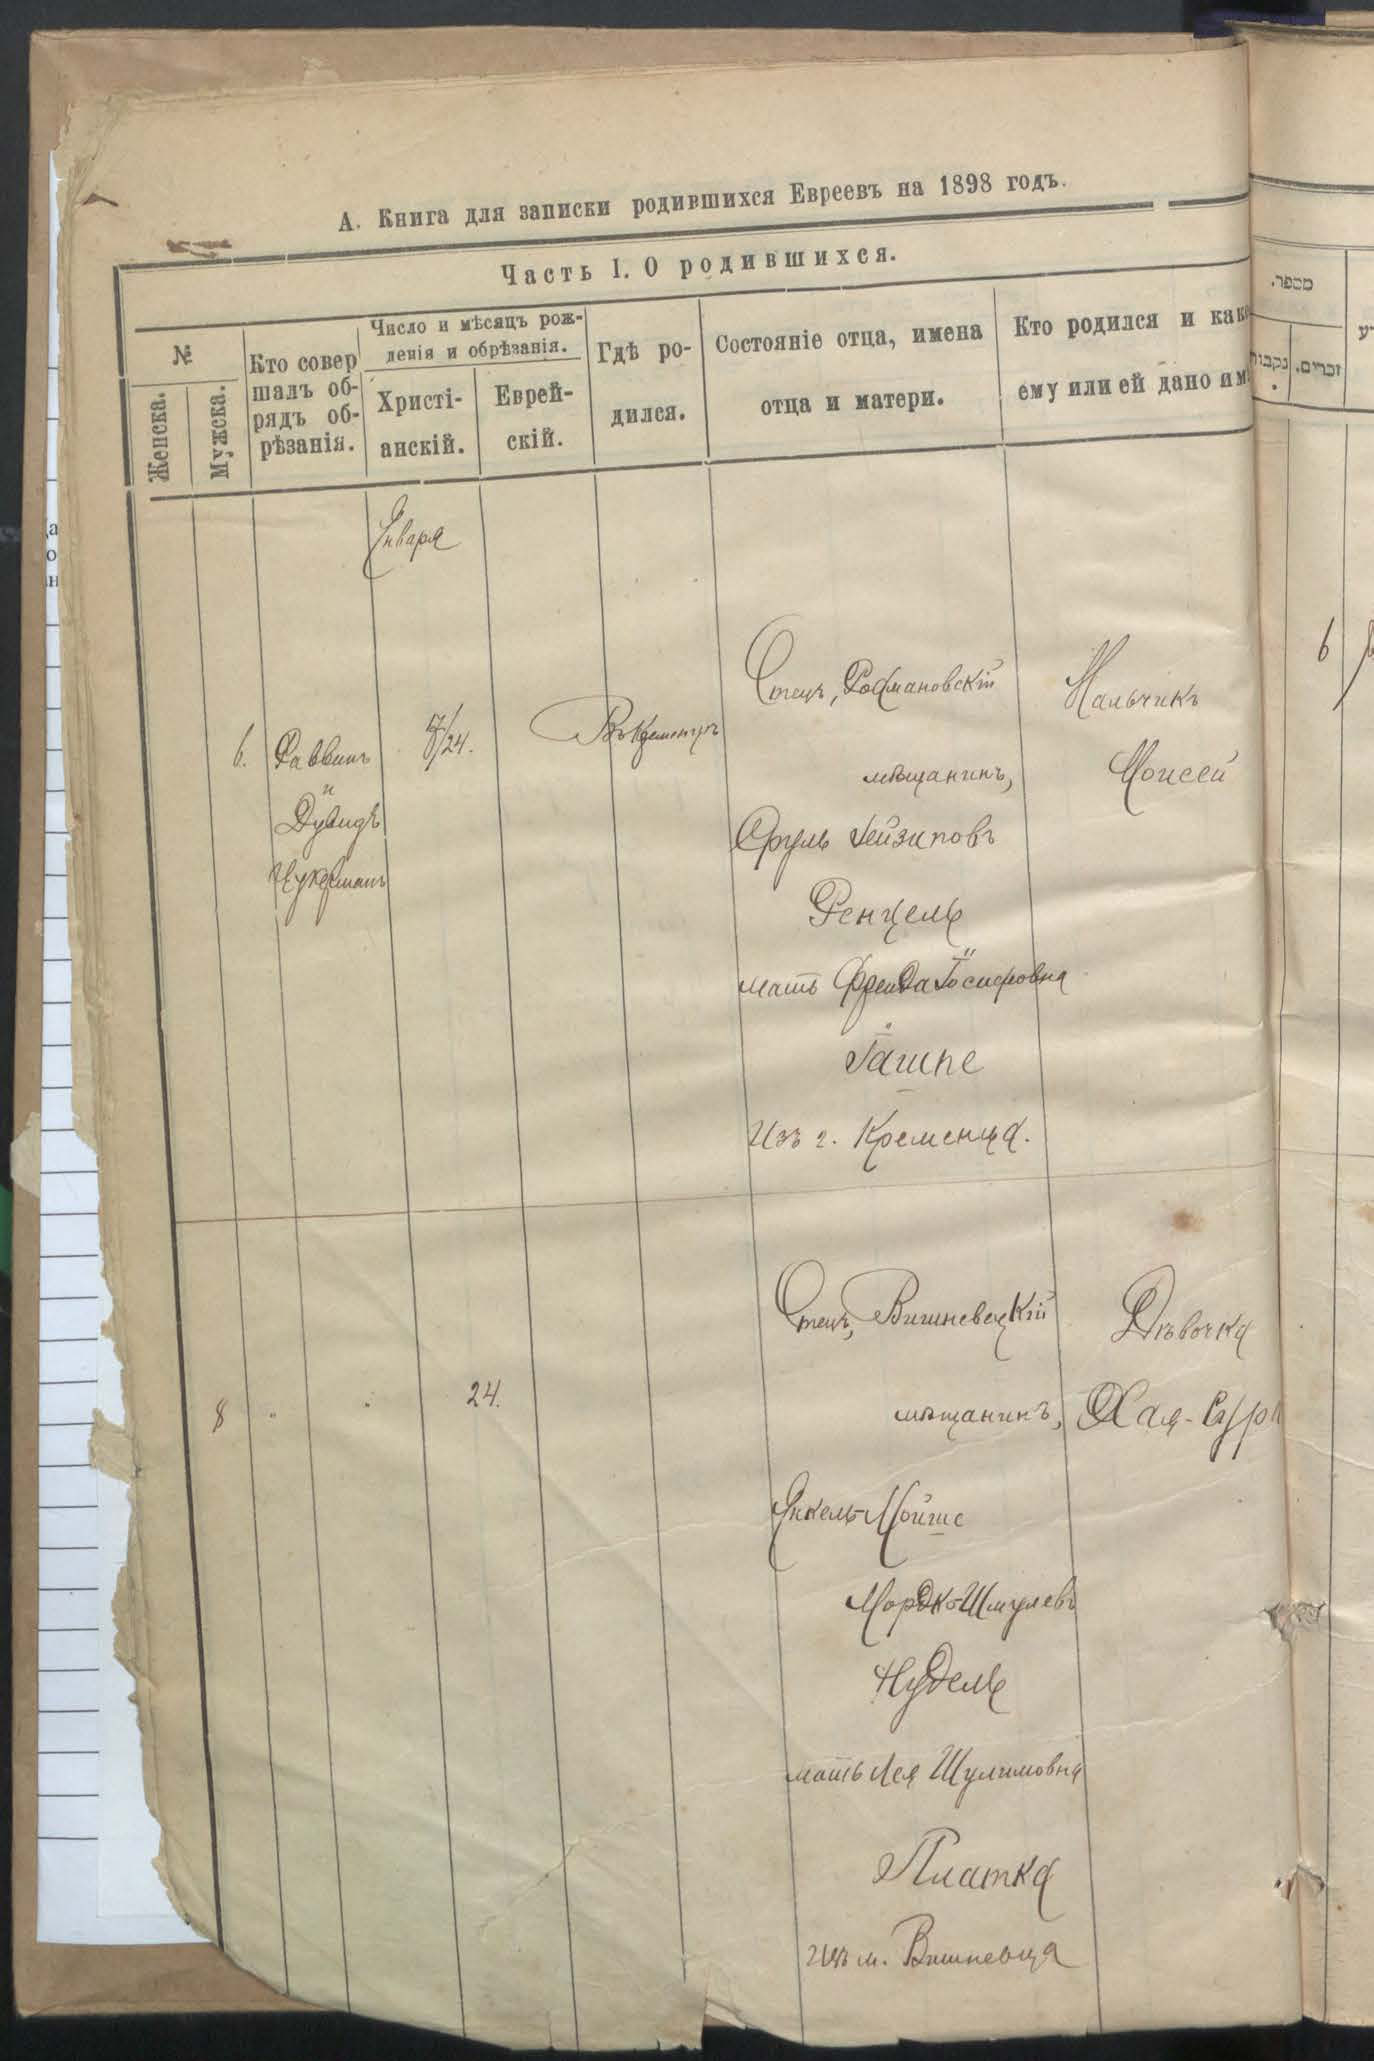 А. Книга для записки родившихся Евреевъ на 1898 годъ.
Часть I. О родившихся.
№
Женска.
Мужска.
Кто совер
шалъ об-
рядъ об-
рѣзанія.
Число и мѣсяцъ рож-
денія и обрѣзанія.
Христі-
анскій.
Еврей-
скій.
Гдѣ ро-
дился.
Состояніе отца, имена
отца и матери.
Кто родился и како
ему или ей дано им
מספר.
נקבות
זכרים.
Января
6.
Раввинъ
и
Дувидъ
Цукерманъ
/24.
Въ Кременцѣ
Отецъ,
мѣщанинъ,
Сруль
Ренцель
мать Фрейда Іосифовна
Гашпе
Изъ г. Кременца.
Мальчикъ
Моисей
6
8
"
"
24.
Отецъ, Вишневецкій
мѣщанинъ,
Янкель-Мойше
Мордко-Шмулевъ
Нудель
мать Лея Шулимовна
Платка
Изъ м. Вишневца
Дѣвочка
Хая-Сура